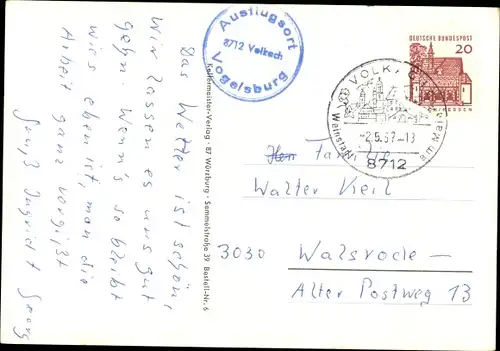 Das Wetter ist schön,
Wir lassen es uns gut
gehn. Wenn's so bleibt
wie eben ist, man die
Arbeit ganz vergißt
Gruß Ingrid Georg
Ausflugsort
8712 Volkach
Vogelsburg
Kellermeister-Verlag · 87 Würzburg · Semmelstraße 39 Bestell-Nr. 6
DEUTSCHE BUNDESPOST
20
VOLKACH
-2.5.67-13
Weinstadt am Main
8712
Herr Familie
Walter Keil
3030 Walsrode -
Alter Postweg 13